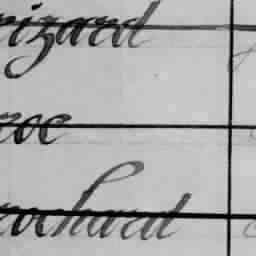 rizard
roc
rochard